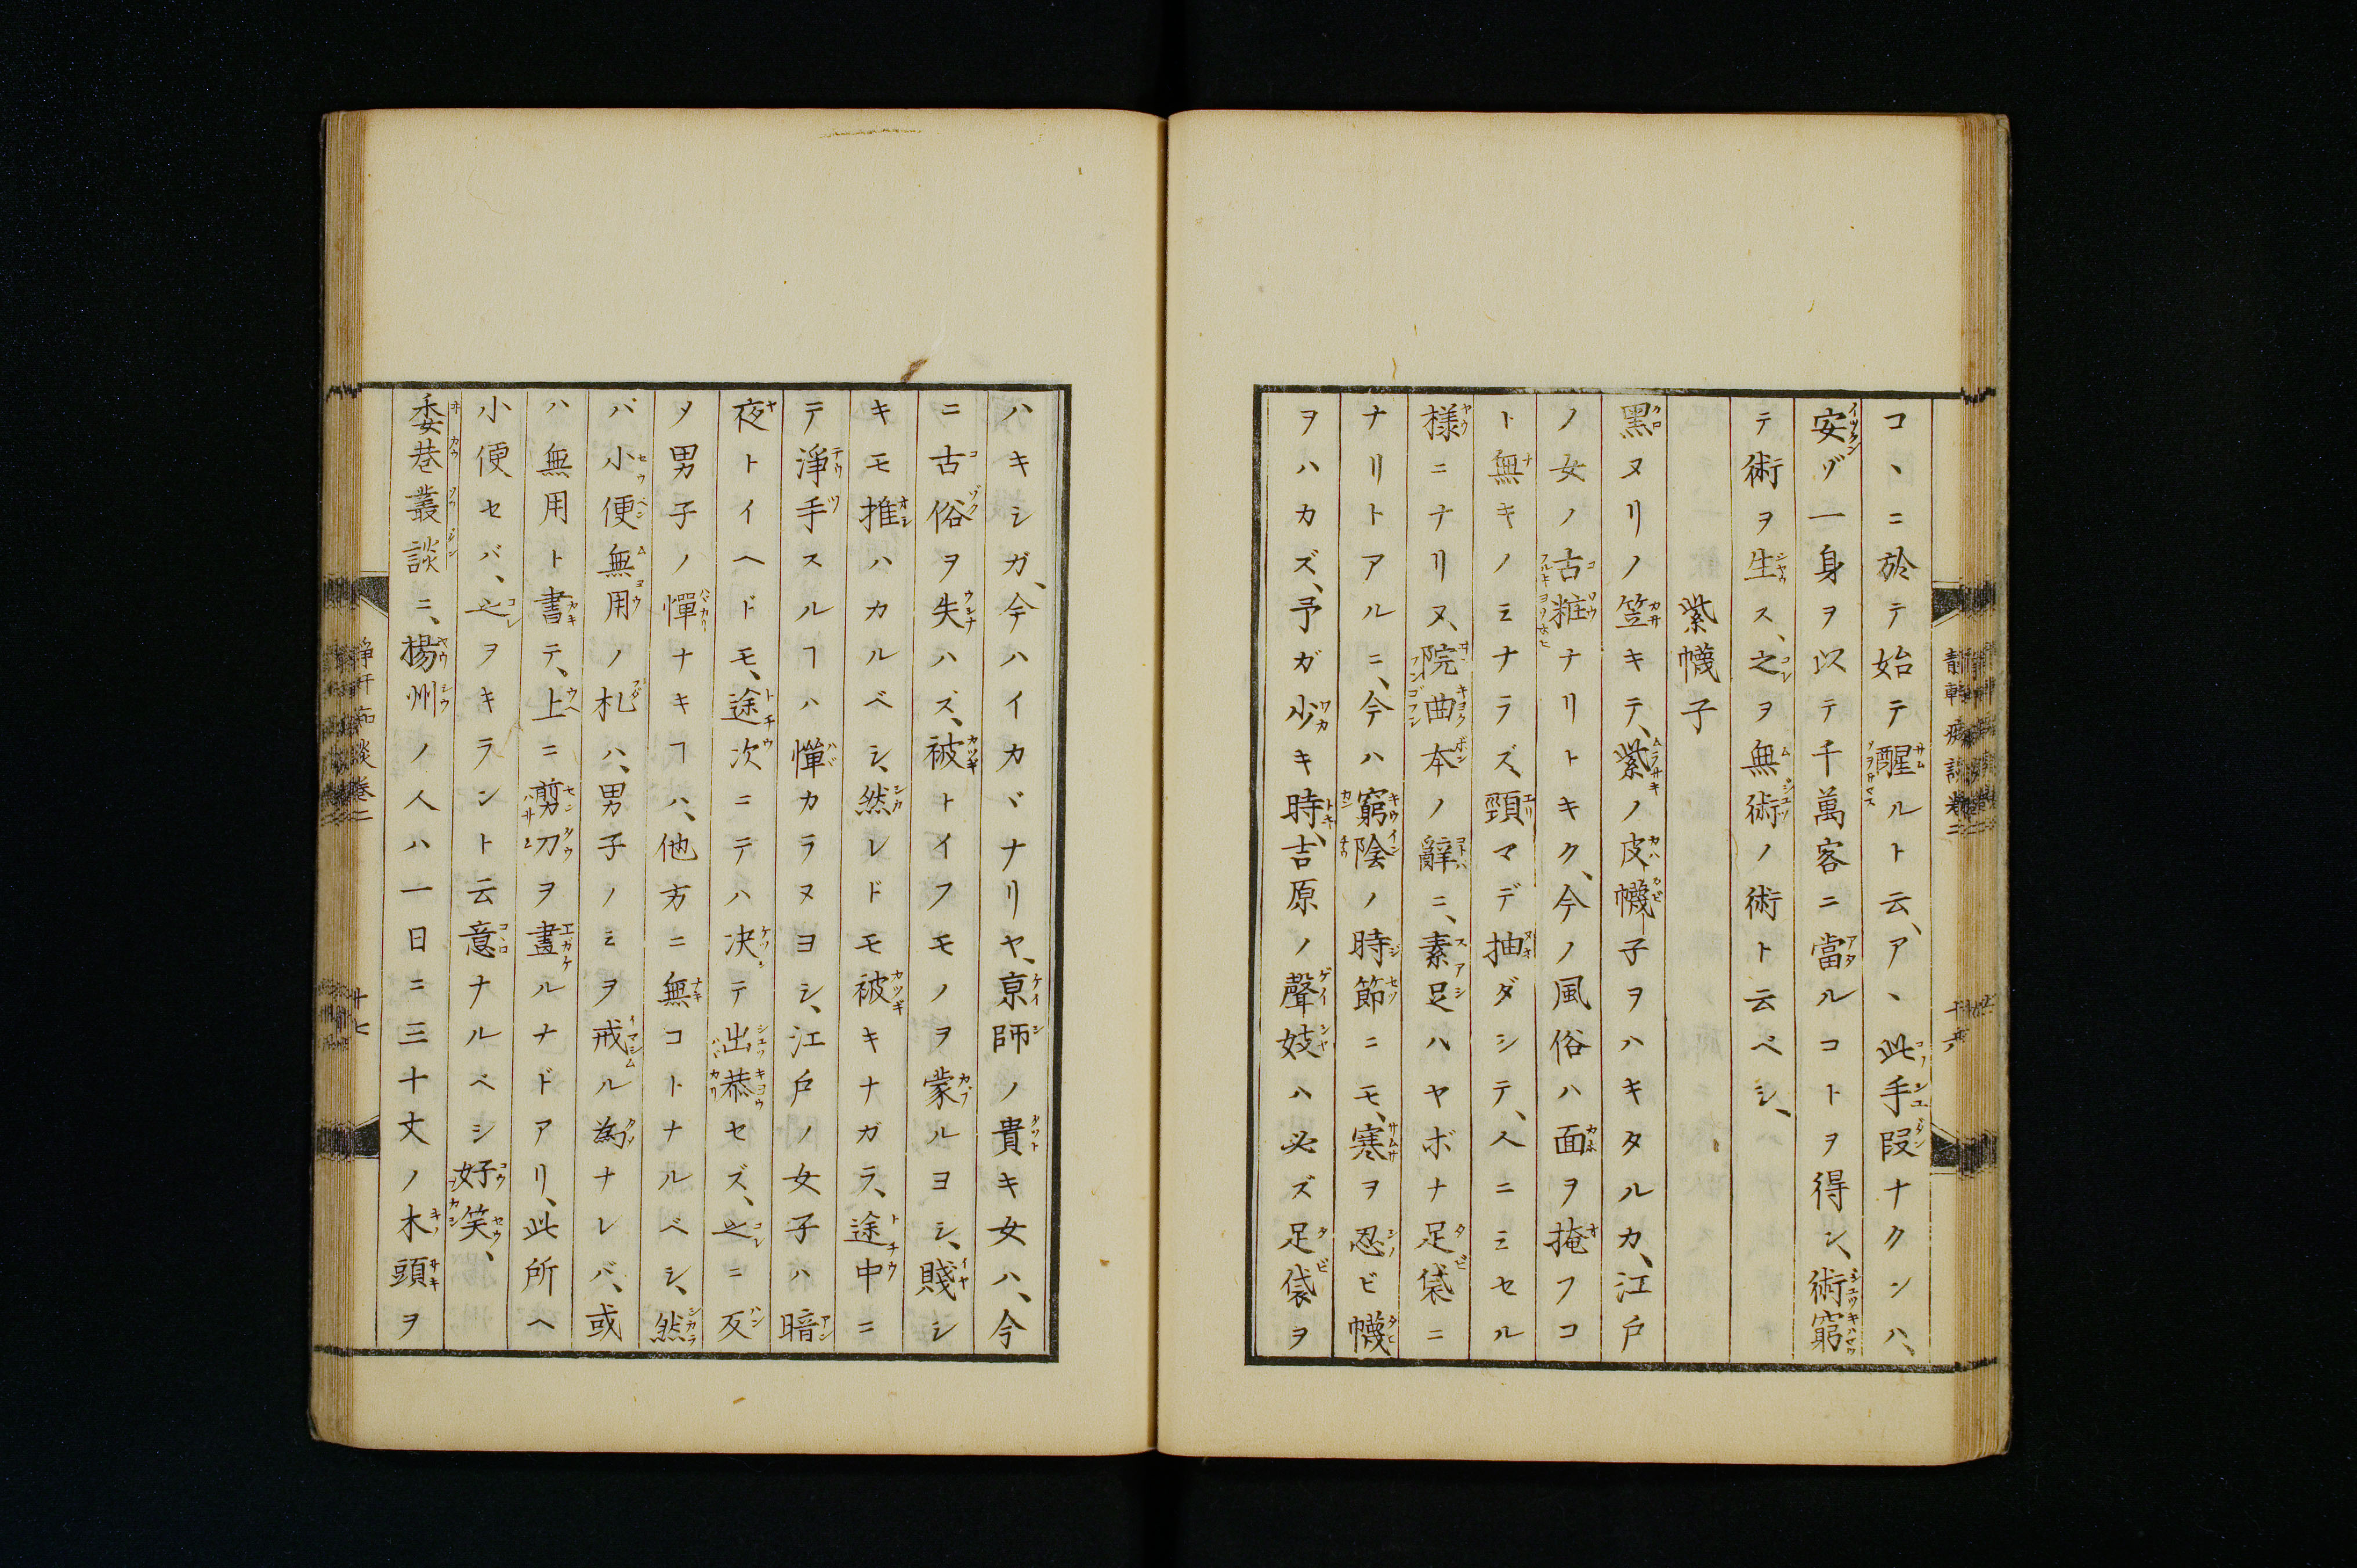 コヽニ於テ始テ醒ルト云、アヽ此手段ナクンハ、
安ゾ一身ヲ以テ千萬客ニ當ルコトヲ得ン、術窮
テ術ヲ生ス、之ヲ無術ノ術ト云ベシ、
紫幭子
黑ヌリノ笠キテ、紫ノ皮幭子ヲハキタルカ、江戸
ノ女ノ古粧ナリトキク、今ノ風俗ハ面ヲ掩フコ
ト無キノミナラズ、頸マデ抽ダシテ、人ニミセル
様ニナリヌ、院曲本ノ辭ニ、素足ハヤボナ足袋ニ
ナリトアルニ、今ハ窮陰ノ時節ニモ、寒ヲ忍ビ幭
ヲハカズ、予ガ少キ時、吉原ノ聲妓ハ必ズ足袋ヲ
ハキシガ、今ハイカヾナリヤ、亰師ノ貴キ女ハ、今
ニ古俗ヲ失ハズ、被トイフモノヲ蒙ルヨシ、賤シ
キモ推ハカルベシ、然レドモ被キナガラ、途中ニ
テ淨手スルヿハ憚カラヌヨシ、江戸ノ女子ハ暗
夜トイヘドモ、途次ニテハ决テ出恭セズ、之ニ反
メ男子ノ憚ナキヿハ、他方ニ無コトナルベシ、然
バ小便無用ノ札ハ、男子ノミヲ戒ル為ナレバ、或
ハ無用ト書テ、上ニ剪刀ヲ畫ルナドアリ、此所ヘ
小便セバ、之ヲキラント云意ナルベシ好笑、
委巷叢談ニ、楊州ノ人ハ一日ニ三十丈ノ木頭ヲ